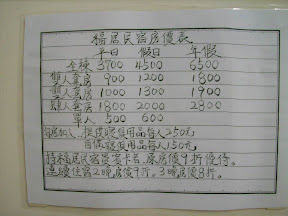 福居民宿房價表
平日 假日 年假
全棟 3700 4500 6500
雙人套房 900 1200 1800
雙人套房 1000 1300 1900
肆人套房 1800 2000 2800
單人 500 600
每加人、提供寢具用品每人250元
自備寢具用品每人150元
持福居民宿貴賓卡者、原房價9折優待。
連續住宿2晚房價9折。3晚房價8折。